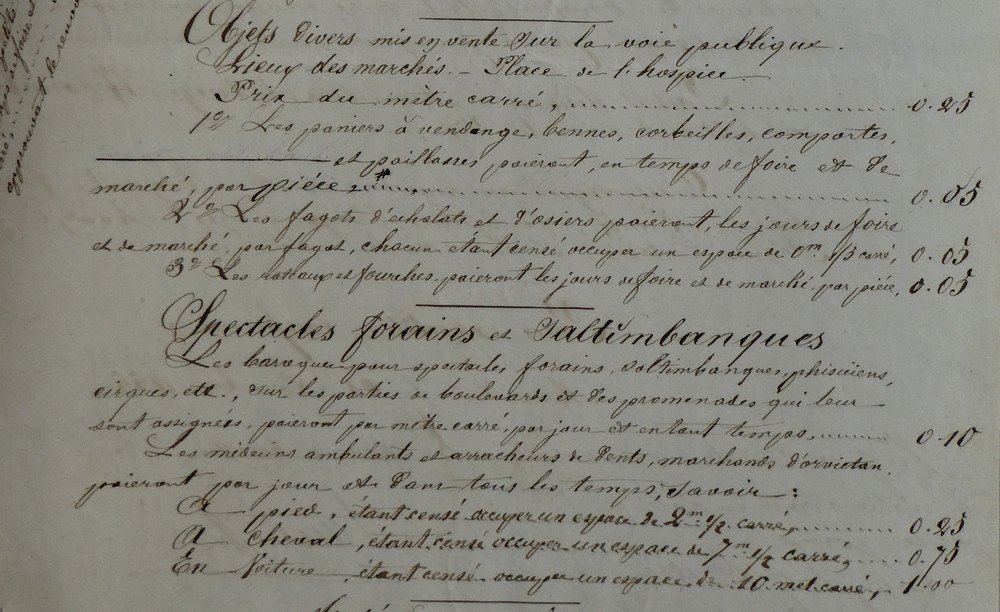 Objets divers mis en vente sur la voie publique.
Lieux des marchés. – Place de l'hospice.
Prix du mètre carré, 0.25
1º Les paniers à vendange, bennes, corbeilles, comportes,
et paillasses paieront, en temps de foire et de
marché, par pièce, 0.05
2º Les fagots d'échalats et d'osiers paieront, les jours de foire
et de marché, par fagot, chacun étant censé occuper un espace de 0m 1/5 carré, 0.05
3º Les rateaux et fourches, paieront les jours de foire et de marché, par pièce, 0.05
Spectacles forains et Saltimbanques
Les baraques pour spectacles forains, saltimbanques, phisiciens,
cirques, etc., sur les parties de boulevards et des promenades qui leur
sont assignées, paieront par mètre carré, par jour et en tout temps, 0.10
Les médecins ambulants et arracheurs de dents, marchands d'orviétan,
paieront par jour et dans tous les temps, savoir :
A pied, étant censé occuper un espace de 2m 1/2 carré, 0.25
A cheval, étant censé occuper un espace de 7m 1/2 carré, 0.75
En voiture, étant censé occuper un espace de 10 met carré, 1.00